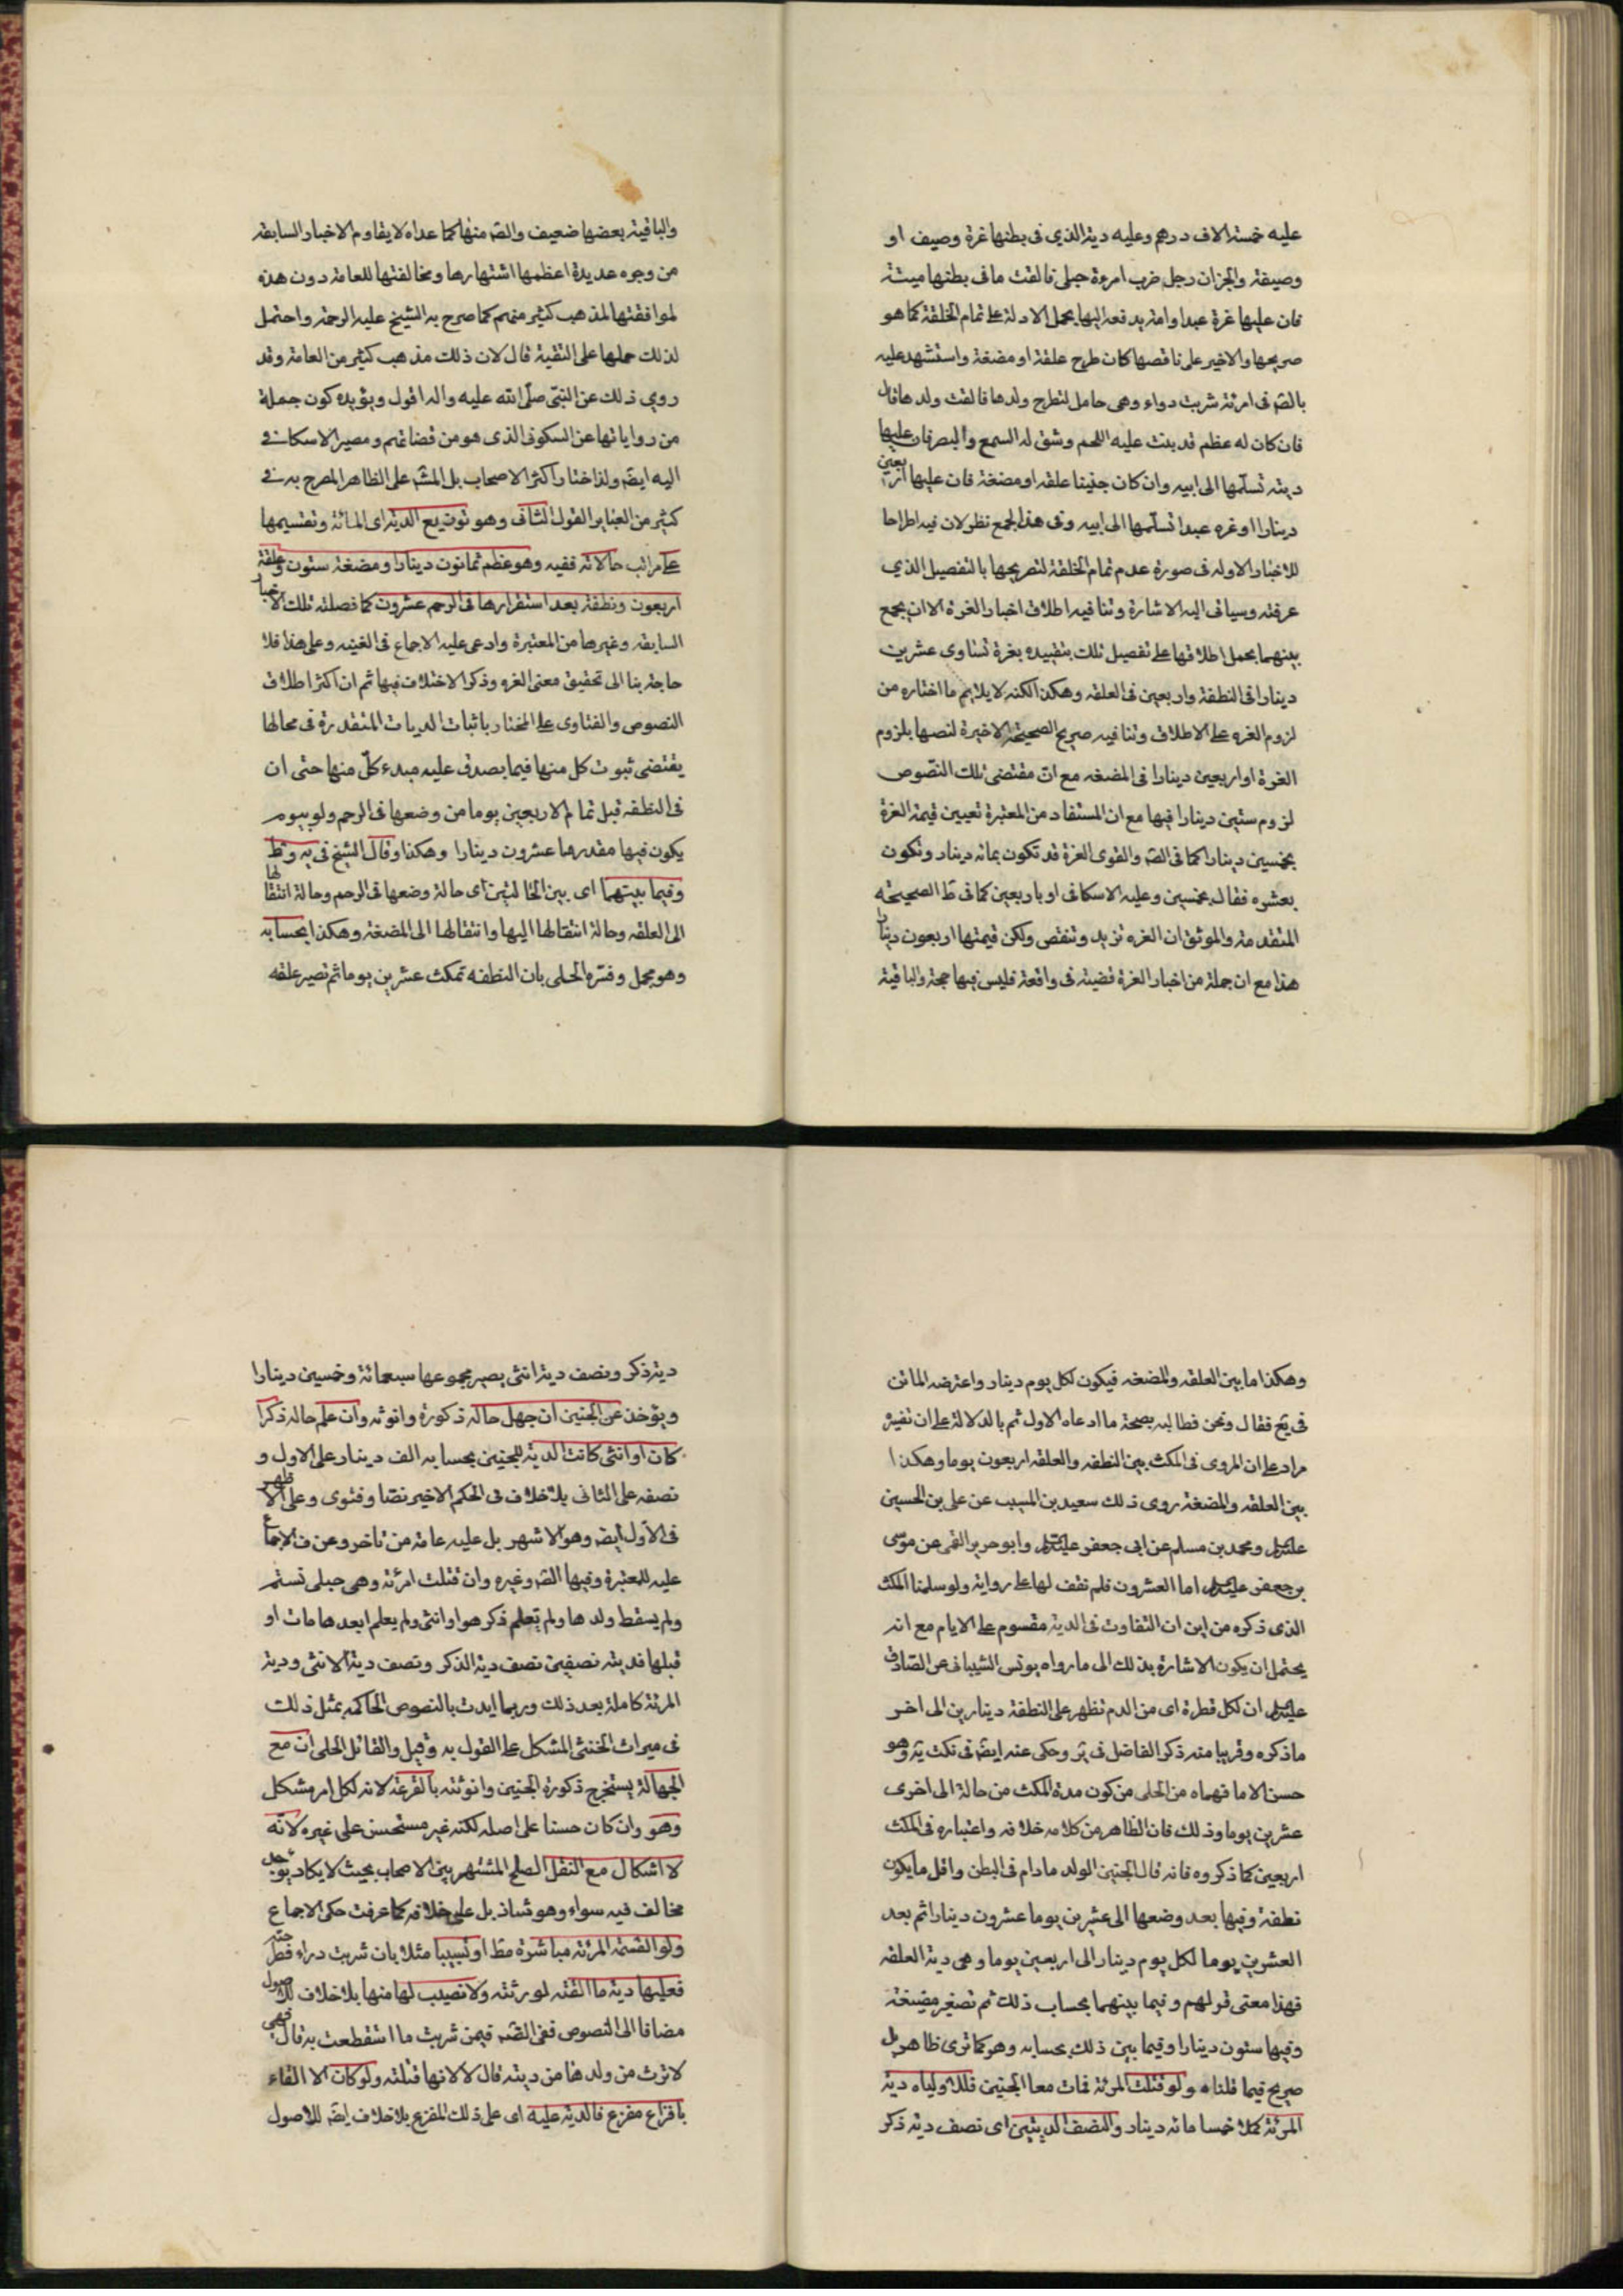 عليه خمسة الاف درهم وعليه دية الذي فى بطنها غرة وصيف او
وصيفة والجزان رجل ضرب امرءة حبلى فالقت ما فى بطنها ميتة
فان عليها غرة عبدا وامة يدفعه اليها بحمل الادلة على تمام الخلقة كما هو
صريحها والاخير على ناقصها كان طرح علقة او مضغة واستشهد عليه
بالصّ فى امرئة شربت دواء وهى حامل لتطرح ولدها فالقت ولدها قال
فان كان له عظم قد بنت عليه اللحم وشق له السمع والبصر فان عليها
ديته تسلّمها الى ابيه وان كان جنينا علقه او مضغة فان عليها اربعين
دينارا او غره عبدا تسلّمها الى ابيه وفى هذا الجمع نظر لان فيه اطراحا
للاخبار الاوله فى صورة عدم تمام الخلقة لتصريحها بالتفصيل الذي
عرفته وسياتى اليه الاشارة وتنافيه اطلاق اخبار الغرة الا ان يجمع
بينهما بحمل اطلاقها على تفصيل تلك بتقييده بغرة تساوى عشرين
دينارا فى النطفة واربعين فى العلقه وهكذا لكنه لا يلايم ما اختاره من
لزوم الغره على الاطلاق وتنافيه صريح الصحيحة الاخيرة لنصها بلزوم
الغرة او اربعين دينارا فى المضغه مع انّ مقتضى تلك النّصوص
لزوم ستين دينارا فيها مع ان المستفاد من المعتبرة تعيين قيمة الغرة
بخمسين دينارا كما فى الصّ والقوى الغرة قد تكون بمائه دينار وتكون
بعشره فقال بخمسين وعليه الاسكافى او باربعين كما فى ظ الصحيحه
المتقدمة والموثق ان الغره تزيد وتنقص ولكن قيمتها اربعون دينارا
هذا مع ان جملة من اخبار الغرة قضية فى واقعة فليس فيها حجة والباقية
والباقية بعضها ضعيف والصّ منها كما عداه لا يقاوم الاخبار السابقه
من وجوه عديدة اعظمها اشتهارها ومخالفتها للعامة دون هذه
لموافقتها لمذهب كثير منهم كما صرح به الشيخ عليه الرحمة واحتمل
لذلك حملها على التقية قال لان ذلك مذهب كثير من العامة وقد
روي ذلك عن النبّى صلّى الله عليه واله اقول ويؤيده كون جملة
من رواياتها عن السكونى الذى هو من قضاتهم ومصير الاسكافى
اليه ايضّ ولذا ختار اكثر الاصحاب بل المشّ على الظاهر المصرح به فى
كثير من العباير القول الثانى وهو توزيع الدية اى المائة وتقسيمها
على مراتب حالاته ففيه وهو عظم ثمانون دينارا ومضغة ستون وعلقة
اربعون ونطفة بعد استقرارها فى الرحم عشرون كما فصلته تلك الاخبار
السابقه وغيرها من المعتبرة وادعى عليه الاجماع فى الغنيه وعلى هذا فلا
حاجة بنا الى تحقيق معنى الغره وذكر الاختلاف فيها ثم ان اكثر اطلاق
النصوص والفتاوى على المختار باثبات الديات المتقدرة فى محالها
يقتضى ثبوت كل منها فيما يصدق عليه مبدء كلّ منها حتى ان
فى النطفه قبل تمام الاربعين يوما من وضعها فى الرحم ولو بيوم
يكون فيها مقدرها عشرون دينارا وهكذا وقال الشيخ فى يه وظ
وفيما بينهما اى بين الحالتين اى حالة وضعها فى الرحم وحالة انتقالها
الى العلقه وحالة انتقالها اليها وانتقالها الى المضغة وهكذا بحسابه
وهو مجمل وفسّره الحلى بان النطفه تمكث عشرين يوما ثم تصير علقه
وهكذا ما بين العلقه والمضغه فيكون لكل يوم دينار واعترضه الماتن
فى يع فقال ونحن فطالبه بصحة ما ادعاه الاول ثم بالدلالة على ان تفيره
مراد على ان المروى فى المكث بين النطفه والعلقه اربعون يوما وهكذا
بين العلقه والمضغة روى ذلك سعيد بن المسيب عن على بن الحسين
عليه السلام ومحمد بن مسلم عن ابى جعفر عليه السلام وابو حرير القمى عن موسى
بن جعفر عليه السلام اما العشرون فلم نقف لها على رواية ولو سلمنا المكث
الذى ذكره من اين ان التفاوت فى الدية مقسوم على الايام مع انه
يحتمل ان يكون الاشارة بذلك الى ما رواه يونس الشيبانى عن الصّادق
عليه السلام ان لكل قطرة اى من الدم تظهر على النطفة دينارين الى اخر
ما ذكره وقريبا منه ذكر الفاضل فى ير وحكى عنه ايضّ فى نكت يه وهو
حسن الا ما فهماه من الحلى من كون مدة المكث من حالة الى اخرى
عشرين يوما وذلك فان الظاهر من كلامه خلافه واعتباره فى المكث
اربعين كما ذكروه فانه قال الجنين الولد ما دام فى البطن واقل ما يكون
نطفة وفيها بعد وضعها الى عشرين يوما عشرون دينارا ثم بعد
العشرين يوما لكل يوم دينار الى اربعين يوما وهى دية العلقه
فهذا معنى قولهم وفيما بينهما بحساب ذلك ثم تصغير مضغة
وفيها ستون دينارا وفيما بين ذلك بحسابه وهو كما ترى ظاهر بل
صريح فيما قلناه ولو قتلت المرئة فمات معا الجنين فللاولياء دية
المرئة كملا خمسا مائه دينار والنصف الديتين اى نصف دية ذكر
دية ذكر ونصف دية انثى يصير مجموعها سبعمائة وخمسين دينارا
ويؤخذ عن الجنين ان جهل حاله ذكورة وانوثه وان علم حاله ذكرا
كان او انثى كانت الدية للجنين بحسابه الف دينار على الاول و
نصفه على الثانى بلا خلاف فى الحكم الاخير نصّا وفتوى وعلى الاظهر
فى الاول ايضّ وهو الاشهر بل عليه عامة من تاخر وعن ف الاجماع
عليه للمعتبرة وفيها الصّ وغيره وان قتلت امرئة وهى حبلى تستم
ولم يسقط ولدها ولم تعلم ذكر هو او انثى ولم يعلم ابعدها مات او
قبلها فديته نصفين نصف دية الذكر ونصف دية الانثى ودية
المرئة كاملة بعد ذلك وربما ايدت بالنصوص الحاكمه بمثل ذلك
فى ميراث الخنثى المشكل على القول به وقيل والقائل الحلى ان مع
الجهالة يستخرج ذكورة الجنين وانوثته بالقرعة لانه لكل امر مشكل
وهو وان كان حسنا على اصله لكنه غير مستحسن على غيره لانّه
لا اشكال مع النقل الصلح المشتهر بين الاصحاب بحيث لا يكاد يوجد
مخالف فيه سواه وهو شاذ بل على خلافه كما عرفت حكى الاجماع
ولو القته المرئة مباشرة مط او تسبيبا مثلا بان شربت دواء فطرحته
فعليها دية ما القته لورثته ولا نصيب لها منها بلا خلاف للاصول
مضافا الى النصوص ففى الصّ فيمن شربت ما استقطعت به قال فهى
لا ترث من ولدها من ديته قال لا لانها قتلته ولو كان الا القاء
بافزاع مفزع فالدية عليه اى على ذلك المفزع بلا خلاف ايضّ للاصول